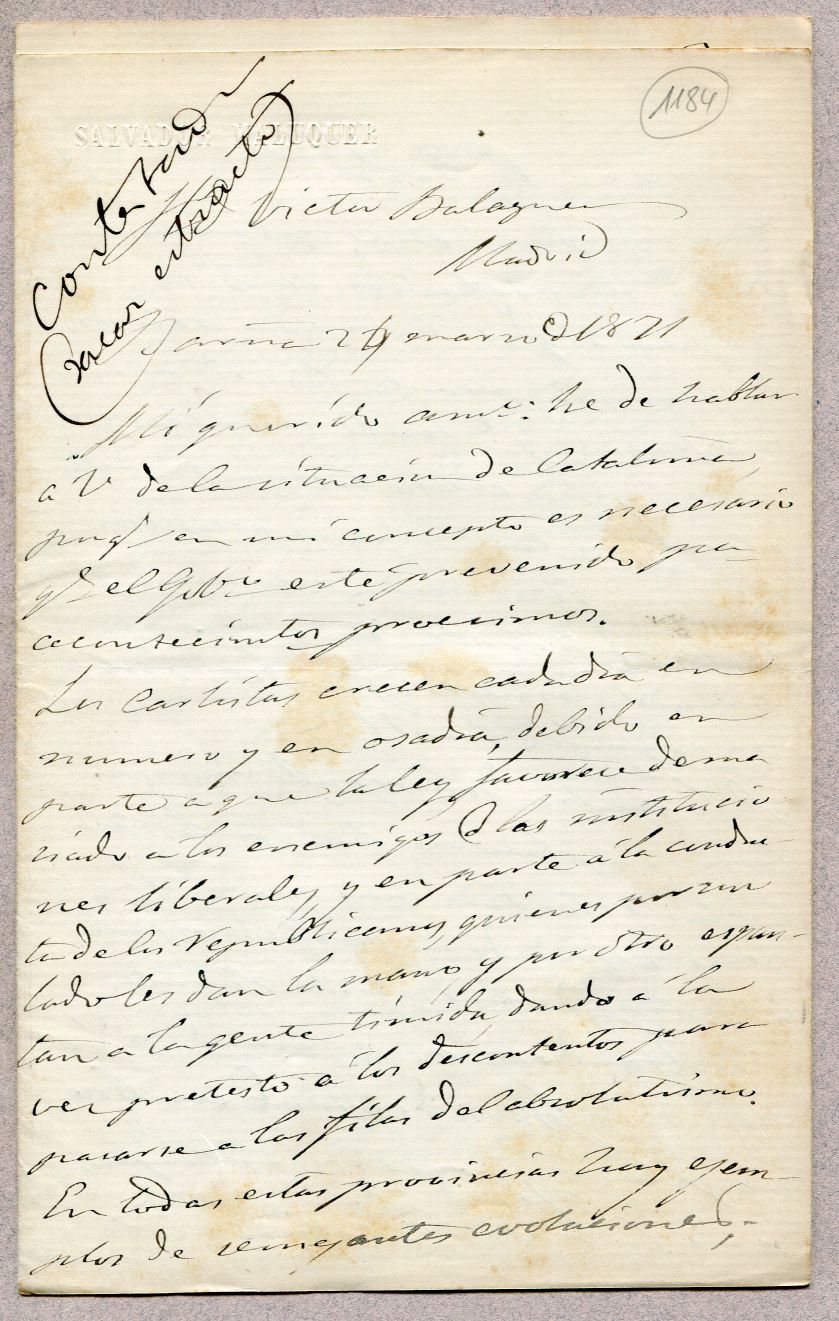 1184
SALVADOR MALUQUER
Contestada
Sacar estracto
Victor Balaguer
Madrid
Barna 24 marzo d 1871
Mi querido amo: he de hablar
a V de la situacion de Cataluña,
porqe en mi concepto es necesario
qe el Gobno esté prevenido pa
acontecimtos procsimos.
Los carlistas crecen cada dia en
numero y en osadia, debido en
parte a que la ley favorece dema
siado a los enemigos d las institucio
nes liberales, y en parte á la conduc
ta de los republicanos, quienes por un
lado les dan la mano, y por otro espan-
tan a la gente tímida, dando á la
vez pretesto á los descontentos para
pasarse a las filas del absolutismo.
En todas estas provincias hay ejem-
plos de semejantes evoluciones;